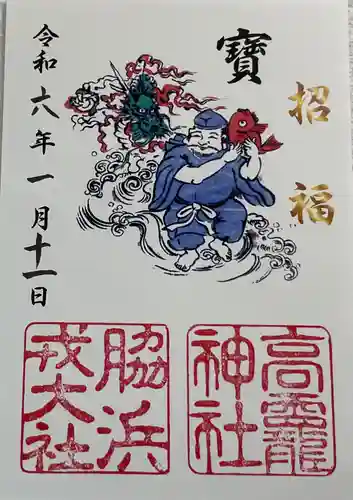 寶
招福
令和六年一月十一日
高靇神社
脇浜戎大社